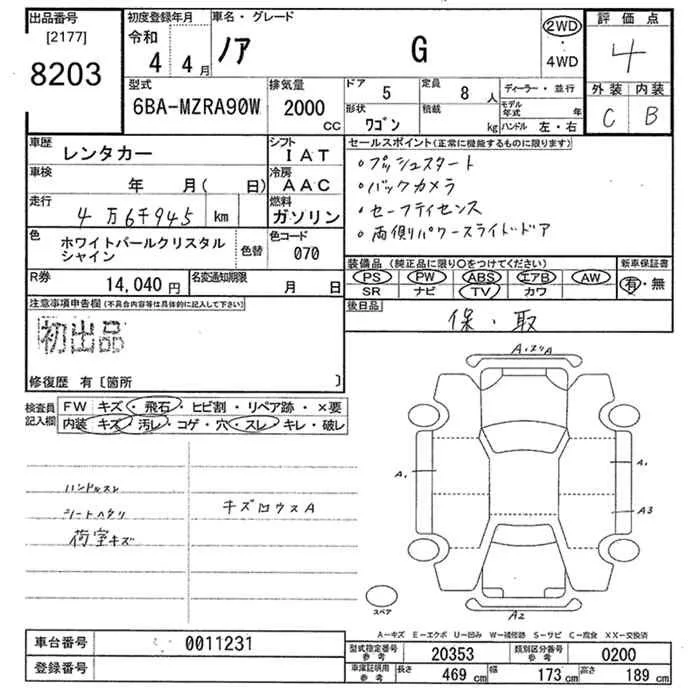 出品番号
[2177]
8203
初度登録年月
令和
4 4月
車名・グレード
ノア G
2WD
・
4WD
評価点
4
外装 内装
C B
型式
6BA-MZRA90W
排気量
2000
CC
ドア
5
定員
8 人
形状
ワゴン
積載
kg
ディーラー・並行
モデル年式 年
ハンドル 左・右
車歴
レンタカー
シフト
IAT
車検
年 月( 日)
冷房
AAC
走行
4万6千945 km
燃料
ガソリン
色
ホワイトパールクリスタル
シャイン
色替
色コード
070
R券
14,040 円
名変通知期限
月 日
セールスポイント(正常に機能するものに限ります)
・プッシュスタート
・バックカメラ
・セーフティセンス
・両側パワースライドドア
装備品(純正品に限り○をつけてください)
新車保証書
PS PW ABS エアB AW
SR ナビ TV カワ
有・無
後日品
保・取
注意事項申告欄(不具合内容等は具体的に記入して下さい)
初出品
修復歴 有〔箇所 〕
検査員
記入欄
FW キズ・飛石・ヒビ割・リペア跡・×要
内装 キズ・汚レ・コゲ・穴・スレ・キレ・破レ
ハンドルスレ
シートヘタリ
荷室キズ
キズ凹ウスA
A.スリA
A.
A.
A3
A2
スペア
A−キズ E−エクボ U−凹み W−補修跡 S−サビ C−腐食 XX−交換済
車台番号
0011231
登録番号
型式指定番号
参考
20353
類別区分番号
参考
0200
車庫証明用
参考
長さ
469 cm
幅
173 cm
高さ
189 cm